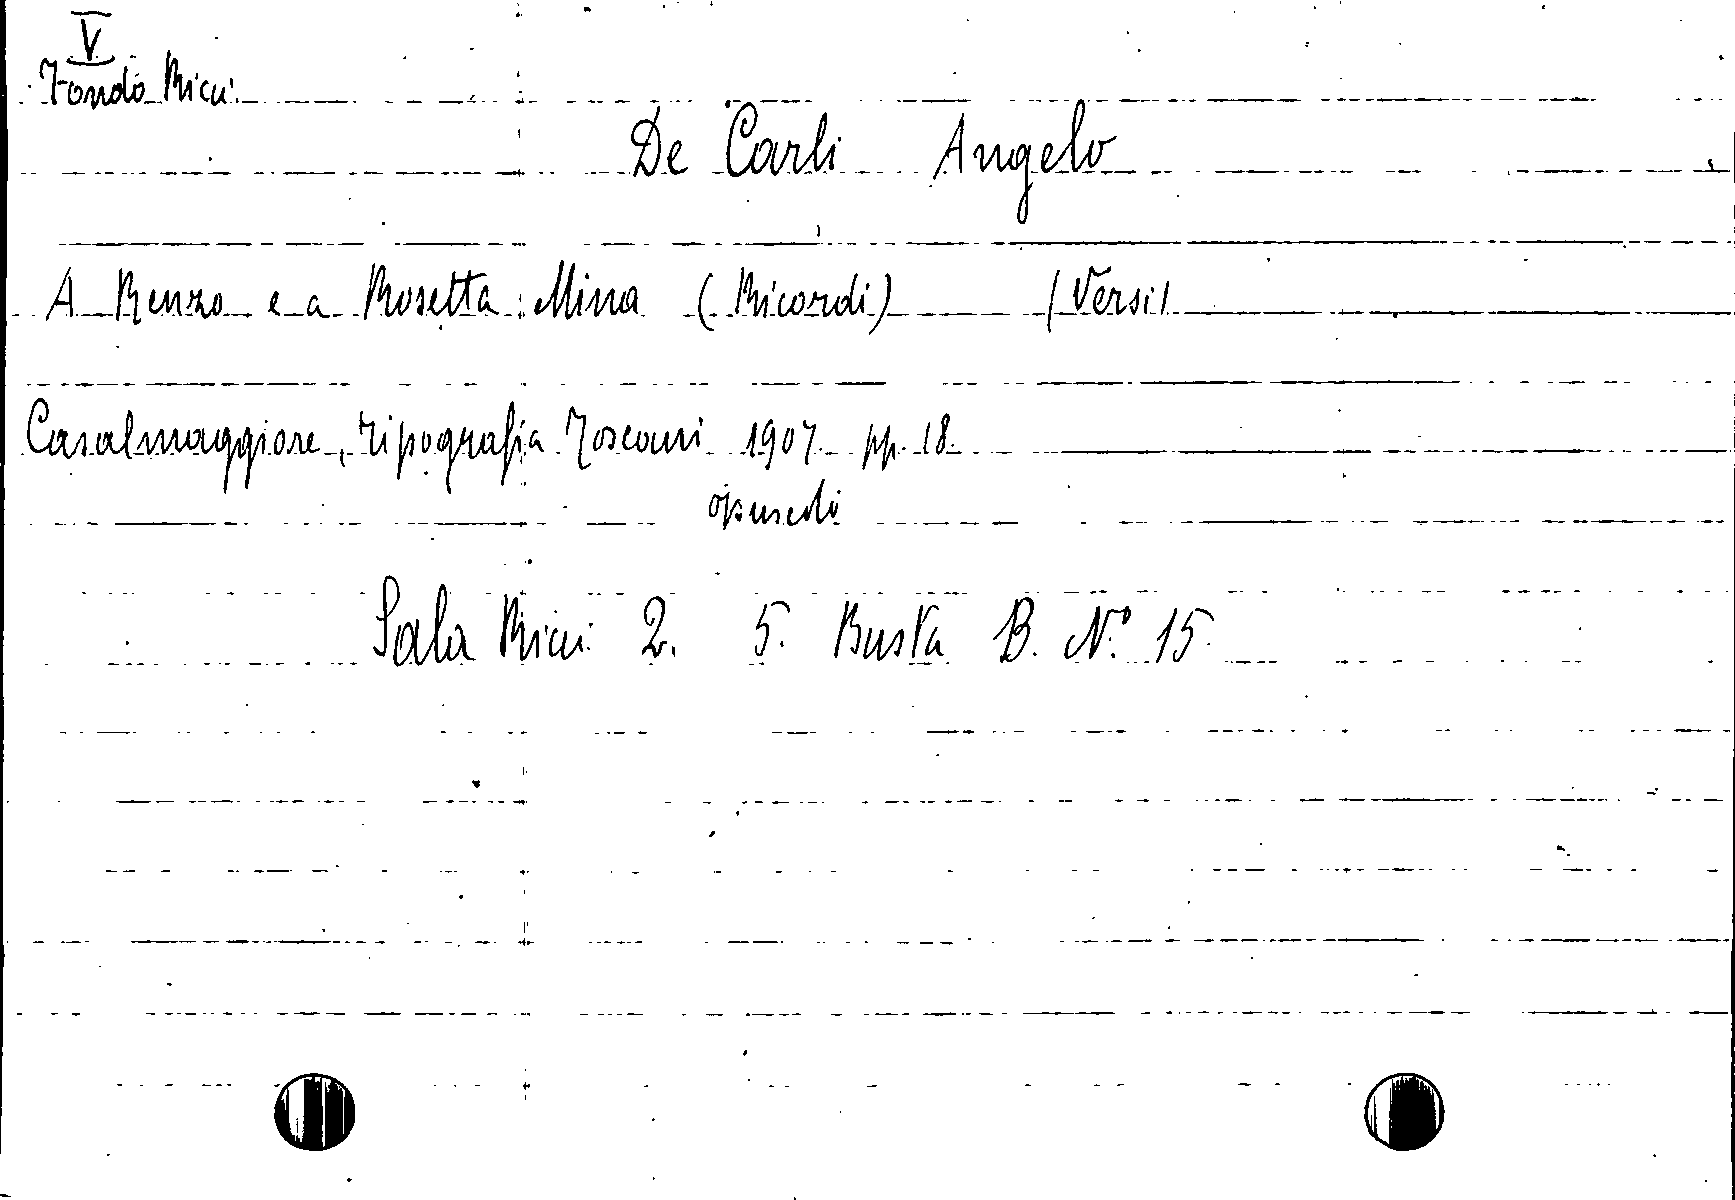 V
Fondo Ricci
De Carli Angelo
A Renzo e a Rosetta Mina (Ricordi) (Versi)
Casalmaggiore, Tipografia Toscani 1907. pp. 18.
opuscolo
Sala Ricci 2. 5. Busta B. N.º 15.